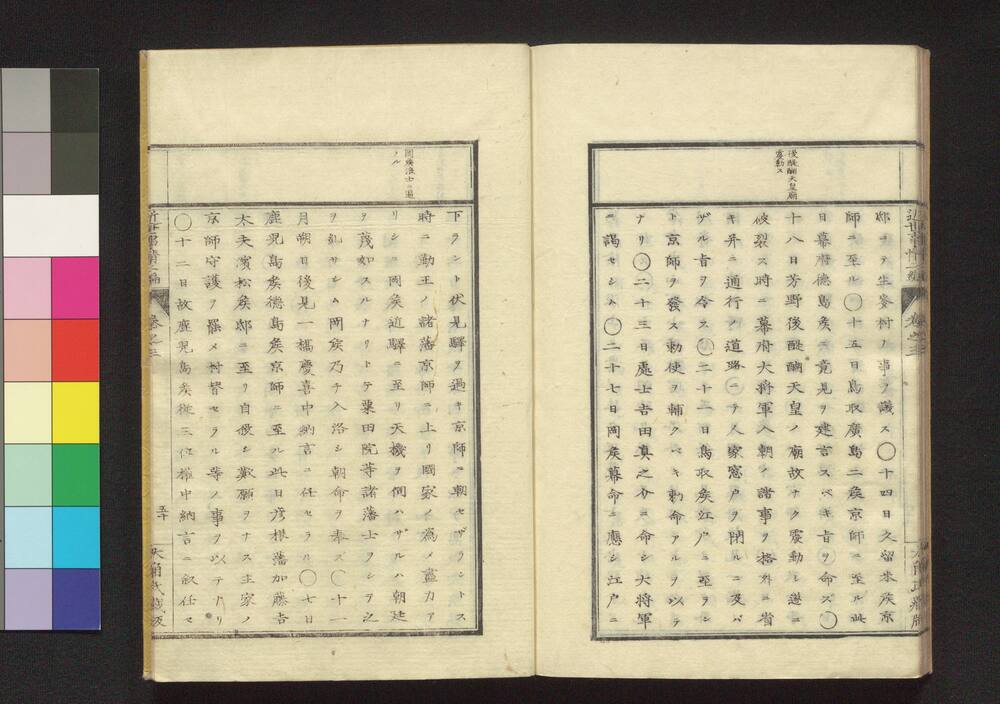 後醍醐天皇廟
震動ス
邸ニテ生麥村ノ事ヲ議ス〇十四日久留米矦京
師ニ至ル〇十五日鳥取廣島二矦京師ニ至ル此
日幕府德島矦ニ竟見ヲ建言スベキ旨ヲ命ズ〇
十八日芳野後醍醐天皇ノ廟故ナク震動シ遂ニ
破裂ス時ニ幕府大將軍入朝ノ諸事ヲ格外ニ省
キ并ニ通行ノ道路ニテ人家窓戸ヲ閉ルニ及バ
ザル旨ヲ令ス〇二十二日鳥取矦江戸ニ至ヲン
ト京師ヲ發ス勅使ヲ輔クベキ勅命アルヲ以テ
ナリ〇二十三日處士吉田眞之介ニ命シ大將軍
ニ謁セシム〇二十七日岡矦幕命ニ應シ江戸ニ
近世事情二編
卷之三
岡矦浪士ニ逼
ラル
下ラント伏見驛ヲ過キ京師ニ朝セザラントス
時ニ勤王ノ諸藩京師ニ上リ國家ノ爲メ盡力ア
リシニ岡矦近驛ニ至リ天機ヲ伺ハザルハ朝廷
ヲ蔑如スルナリトテ粟田院等諸藩士ヲシテ之
ヲ糺サシム岡矦乃チ入洛シ朝命ヲ奉ズ〇十一
月朔日後見一橋慶喜中納言ニ任セラル〇七日
鹿児島矦德島矦京師ニ至ル此日彦根藩加藤吉
太夫濱松矦邸ニ至リ自殺シ歎願ヲナス主家ノ
京師守護ヲ罷メ村皆セラル等ノ事ヲ以テナリ
〇十二日故鹿児島矦從三位權中納言ニ叙任セ
近世事情二編
卷之三
五十
大角氏藏版